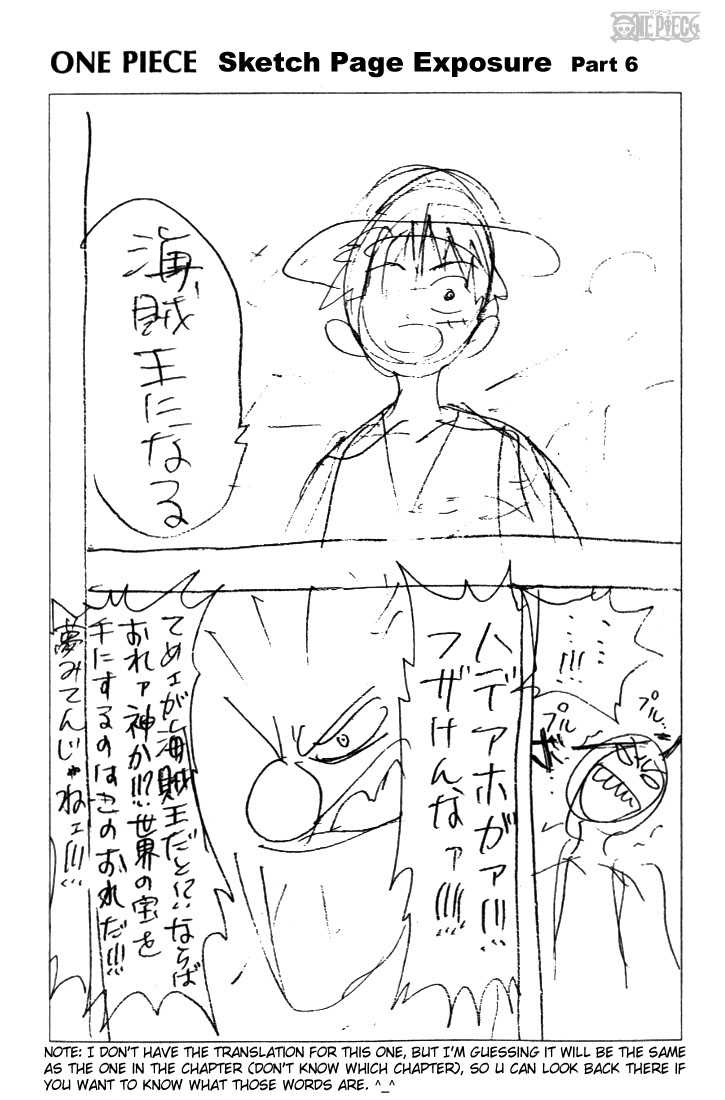 ワンピース
ONE PIECE
ONE PIECE Sketch Page Exposure Part 6
海賊
王になる
!!!
プル…
プル…
ハデアホがァ!!!
フザけんなァ!!!!
てめェが海賊王だと!?ならば
おれァ神か!!?世界の宝を
手にするのはこのおれだ!!!
夢みてんじゃねェ!!!
NOTE: I DON'T HAVE THE TRANSLATION FOR THIS ONE, BUT I'M GUESSING IT WILL BE THE SAME
AS THE ONE IN THE CHAPTER (DON'T KNOW WHICH CHAPTER), SO U CAN LOOK BACK THERE IF
YOU WANT TO KNOW WHAT THOSE WORDS ARE. ^_^